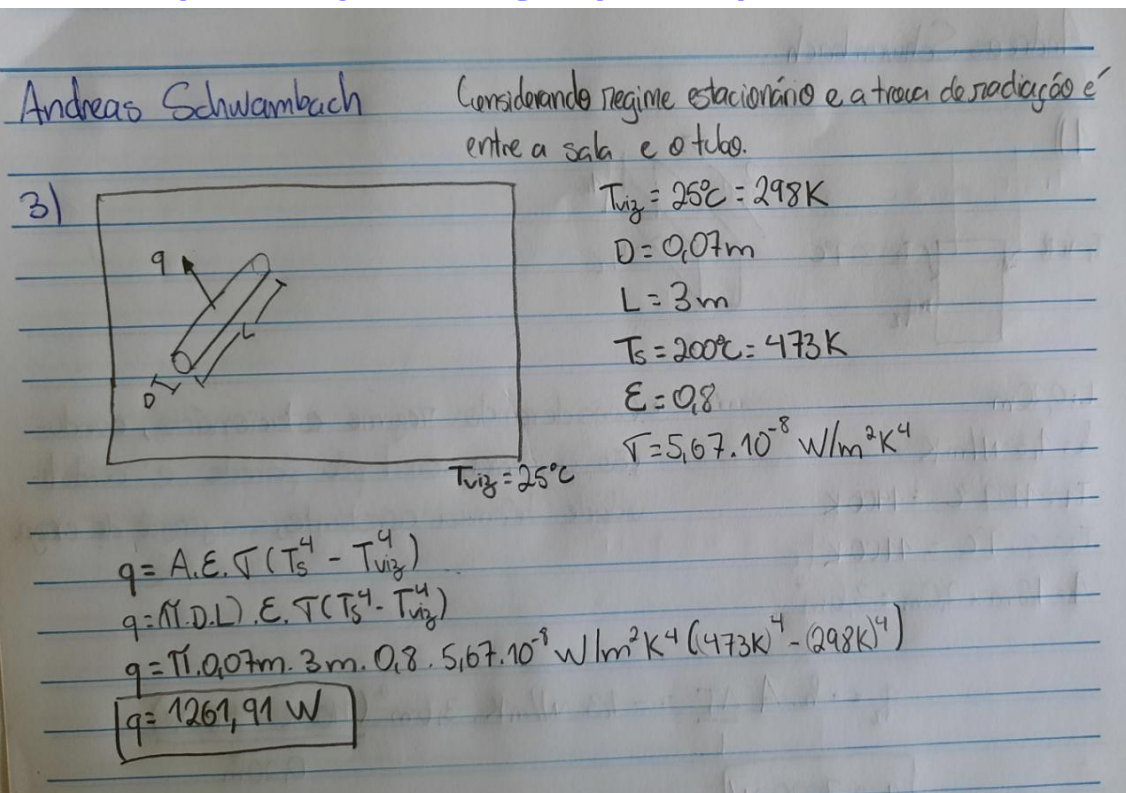 Andreas Schwambach
Considerando regime estacionário e a troca de radiação é
entre a sala e o tubo.
3)
Tviz = 25°C = 298K
D = 0,07m
L = 3m
Ts = 200°C = 473K
ε = 0,8
σ = 5,67.10⁻⁸ W/m²K⁴
q
L
D
Tviz = 25°C
q = A.ε.σ(Ts⁴ - Tviz⁴)
q = (π.D.L).ε.σ(Ts⁴ - Tviz⁴)
q = π.0,07m.3m.0,8.5,67.10⁻⁸ W/m²K⁴((473K)⁴ - (298K)⁴)
q = 1261,91 W